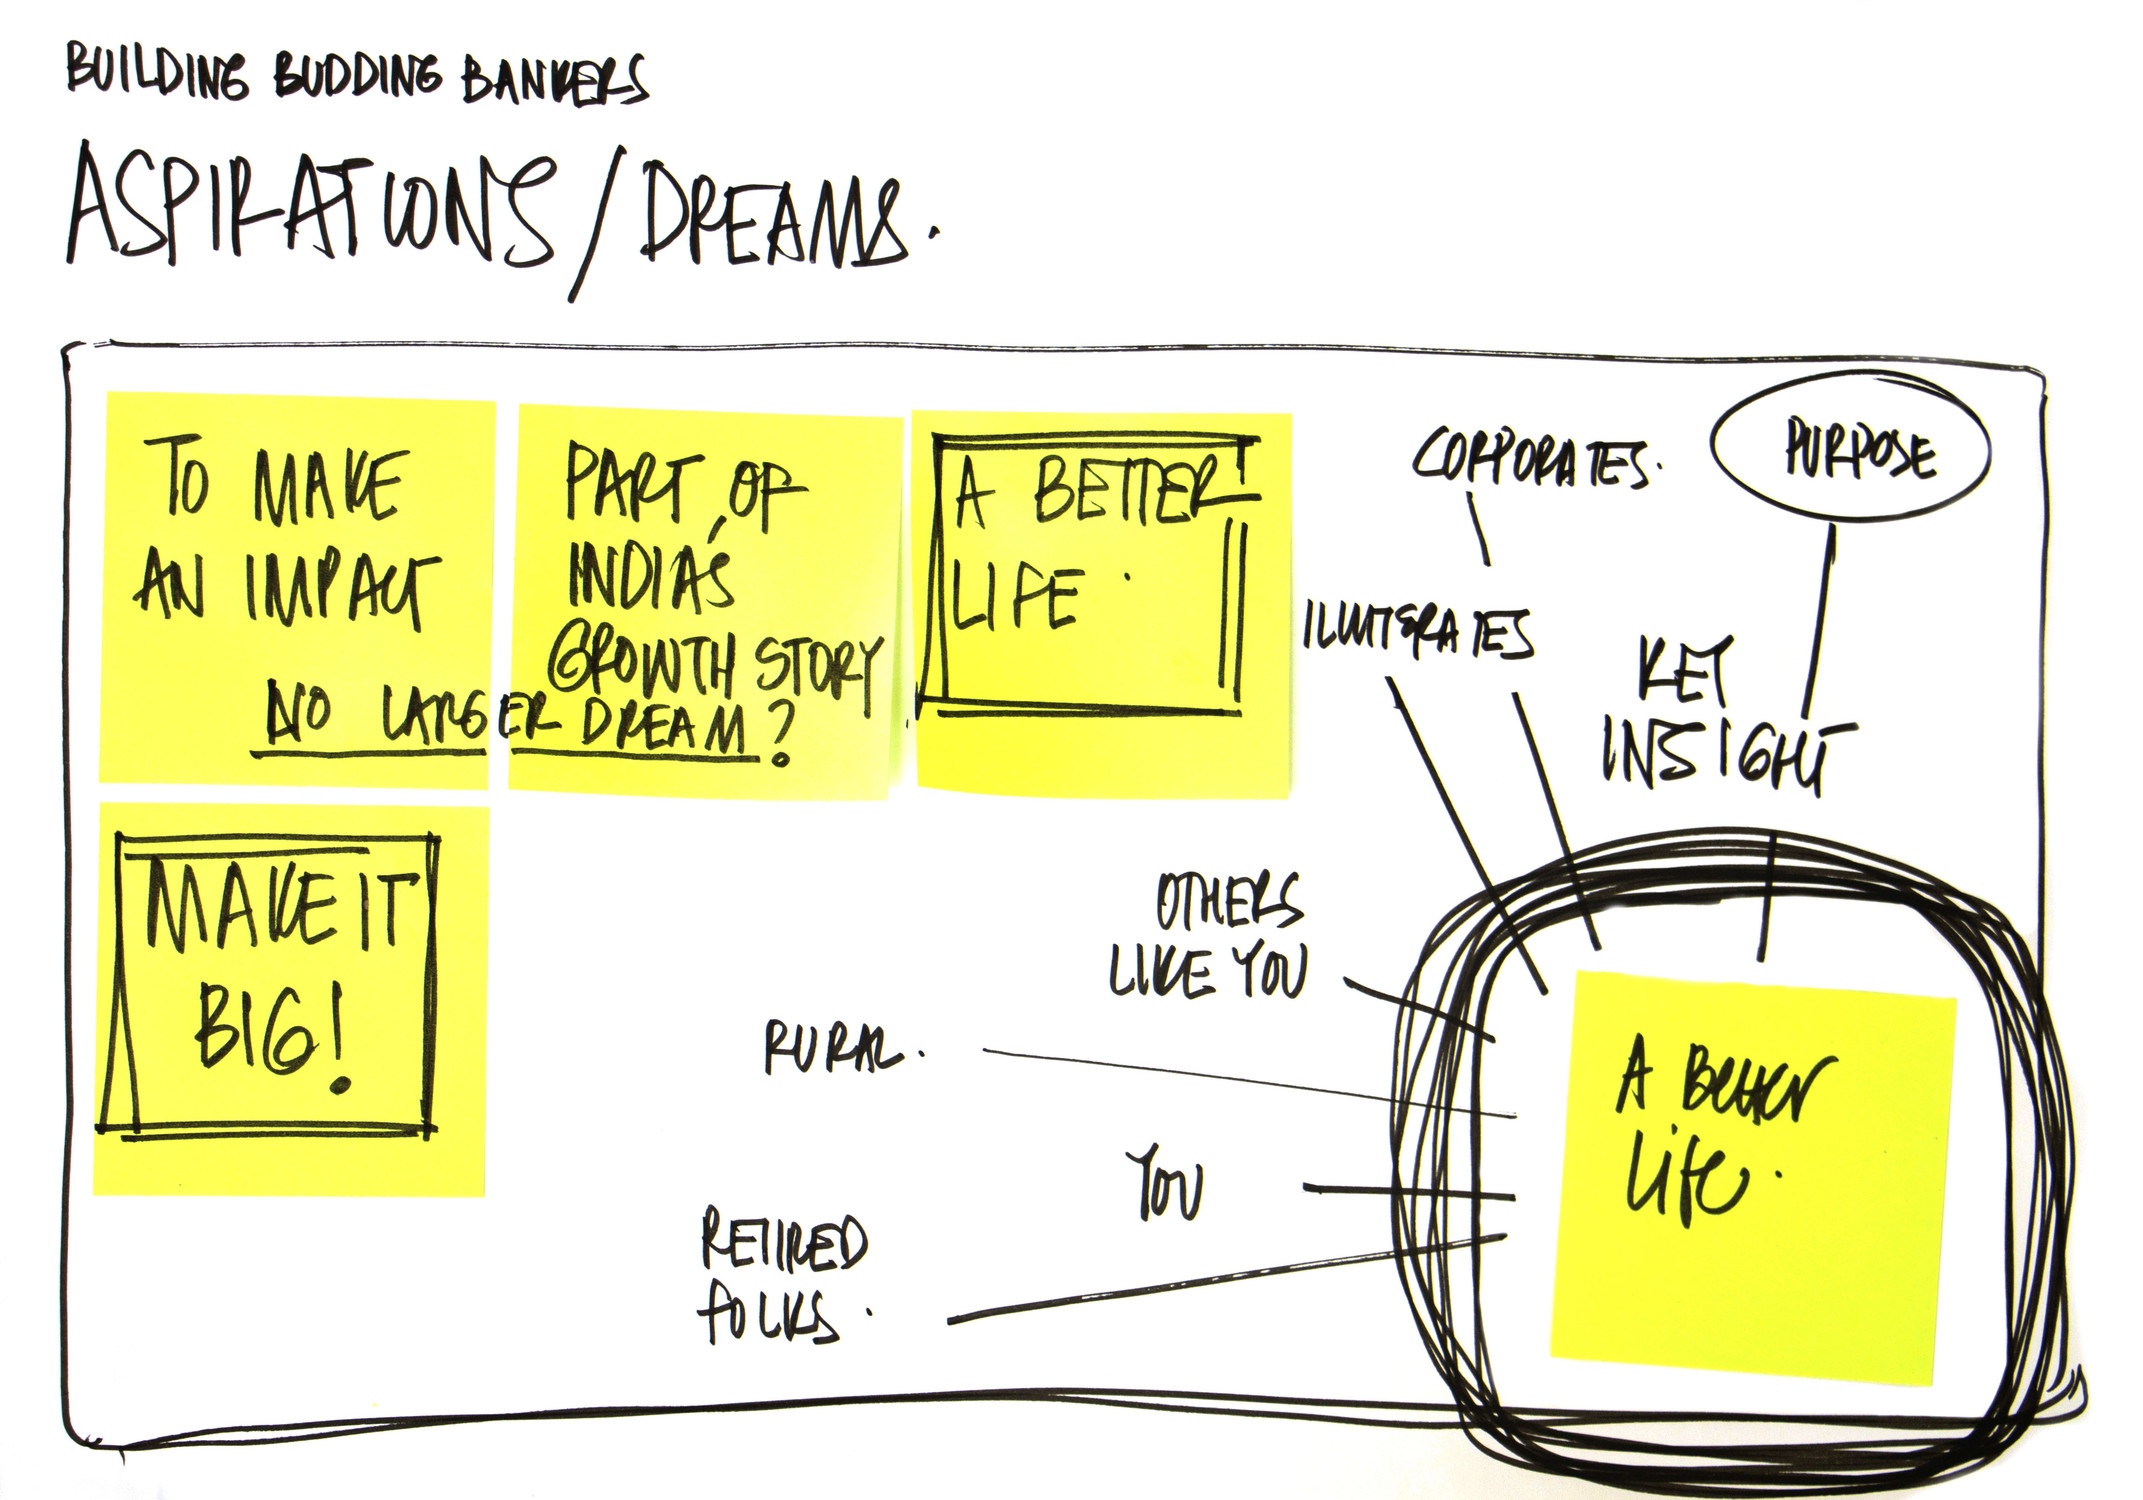 BUILDING BUDDING BANKERS
ASPIRATIONS/DREAMS.
TO MAKE
AN IMPACT
PART OF
INDIA'S
GROWTH STORY
NO LARGER DREAM?
A BETTER
LIFE.
MAKE IT
BIG!
CORPORATES.
PURPOSE
ILLITERATES
KEY
INSIGHT
OTHERS
LIKE YOU
RURAL.
YOU
RETIRED
FOLKS.
A Better
Life.